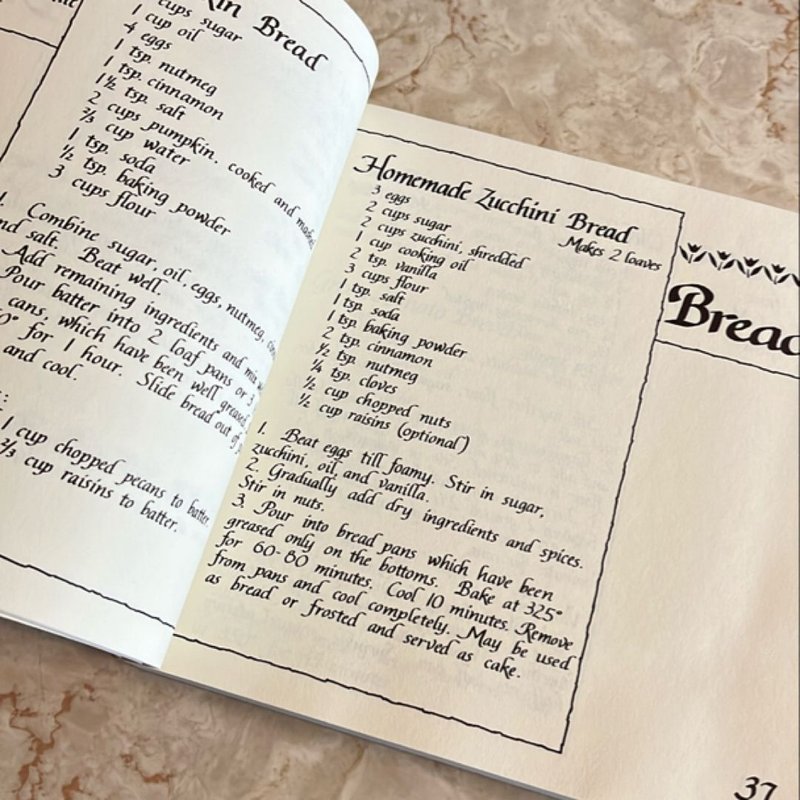 Bread
cups sugar
1 cup oil
4 eggs
1 tsp. nutmeg
1 tsp. cinnamon
1½ tsp. salt
2 cups pumpkin, cooked and
⅔ cup water
1 tsp. soda
½ tsp. baking powder
3 cups flour
Combine sugar, oil, eggs, nutmeg,
and salt. Beat well.
Add remaining ingredients and mix
Pour batter into 2 loaf pans or 3
cans, which have been well greased.
for 1 hour. Slide bread out of
and cool.
1 cup chopped pecans to batter.
⅔ cup raisins to batter.
Homemade Zucchini Bread
Makes 2 loaves
3 eggs
2 cups sugar
2 cups zucchini, shredded
1 cup cooking oil
2 tsp. vanilla
3 cups flour
1 tsp. salt
1 tsp. soda
1 tsp. baking powder
2 tsp. cinnamon
½ tsp. nutmeg
¼ tsp. cloves
½ cup chopped nuts
½ cup raisins (optional)
1. Beat eggs till foamy. Stir in sugar,
zucchini, oil, and vanilla.
2. Gradually add dry ingredients and spices.
Stir in nuts.
3. Pour into bread pans which have been
greased only on the bottoms. Bake at 325°
for 60-80 minutes. Cool 10 minutes. Remove
from pans and cool completely. May be used
as bread or frosted and served as cake.
Bread
37